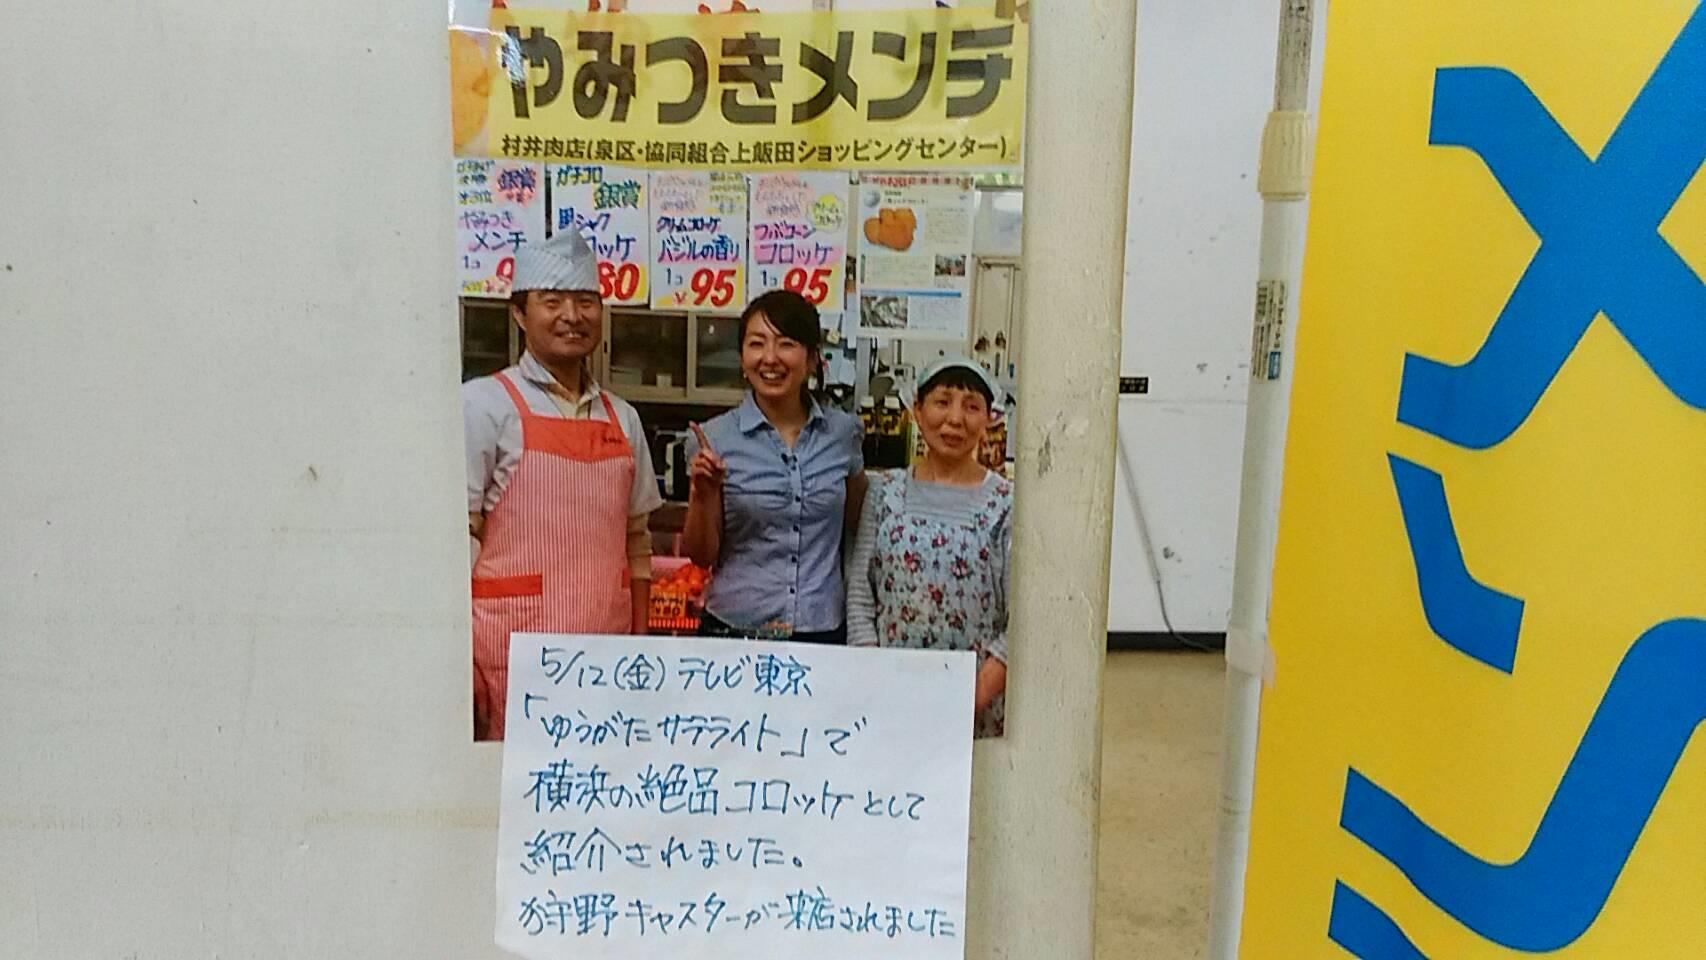 やみつきメンチ
村井肉店(泉区・協同組合上飯田ショッピングセンター)
銀賞
やみつき
メンチ
1コ
ガチコロ
銀賞
80
クリームコロッケ
バジルの香り
1コ
¥95
つぶコーン
コロッケ
1コ
95
5/12(金)テレビ東京
「ゆうがたサテライト」で
横浜の絶品コロッケとして
紹介されました。
狩野キャスターが来店されました
メン